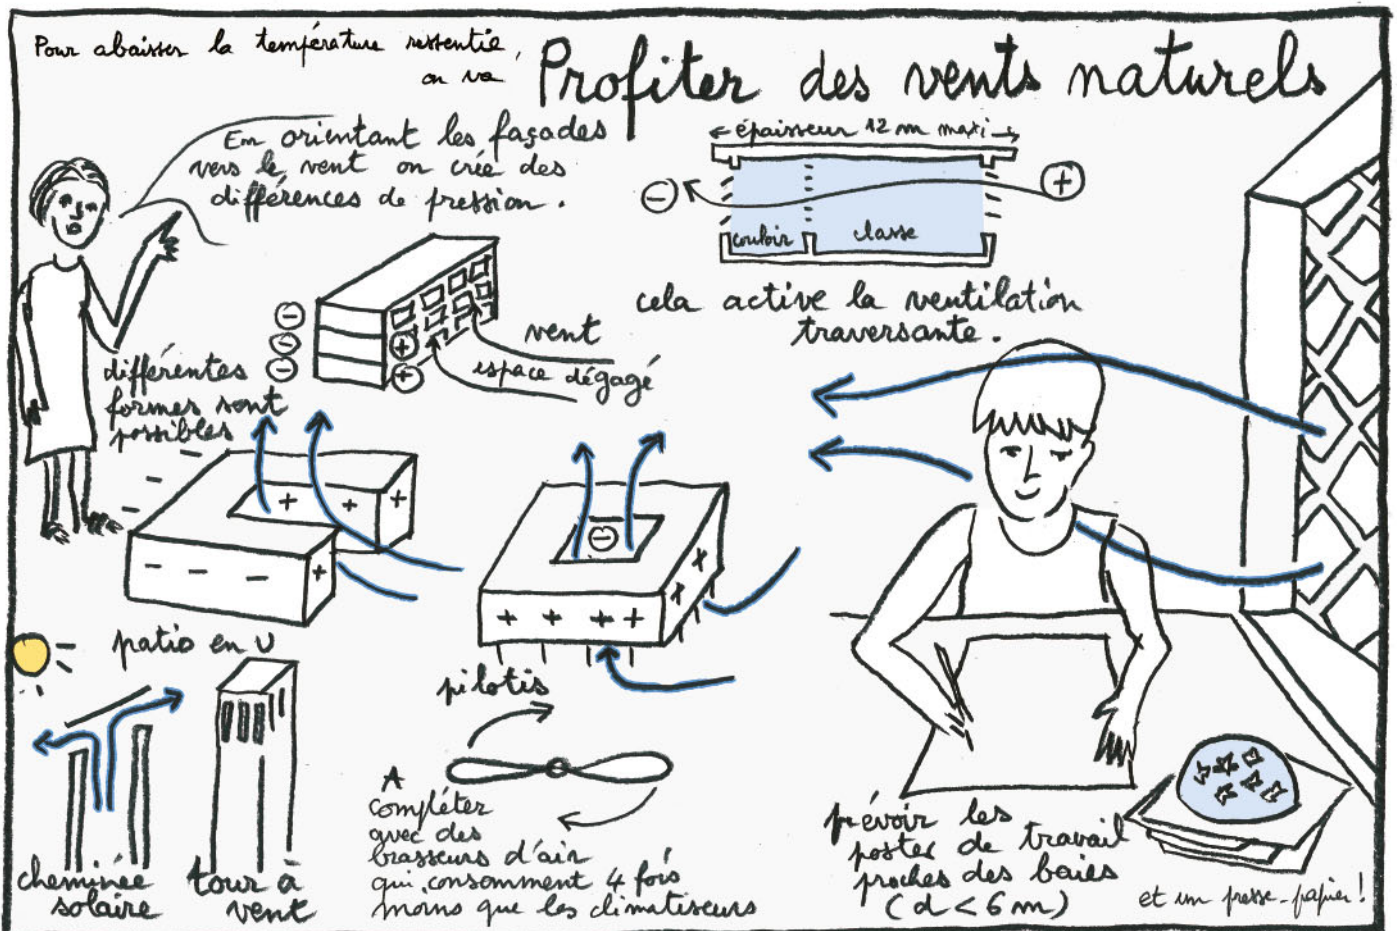 Pour abaisser la température ressentie,
on va
Profiter des vents naturels
En orientant les façades
vers le vent on crée des
différences de pression.
← épaisseur 12 m maxi →
-
+
couloir
classe
cela active la ventilation
traversante.
-
-
-
+
+
vent
espace dégagé
différentes
formes sont
possibles
+ + +
- - - +
patio en U
-
+ + + +
x x x
pilotis
cheminée
solaire
tour à
vent
A
compléter
avec des
brasseurs d'air
qui consomment 4 fois
moins que les climatiseurs
prévoir les
postes de travail
proches des baies
(d < 6 m)
et un presse-papier!